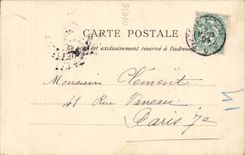 CARTE POSTALE
est exclusivement réservé à l'adresse
Monsieur Clément
41 Rue Vaneau
Paris 7e